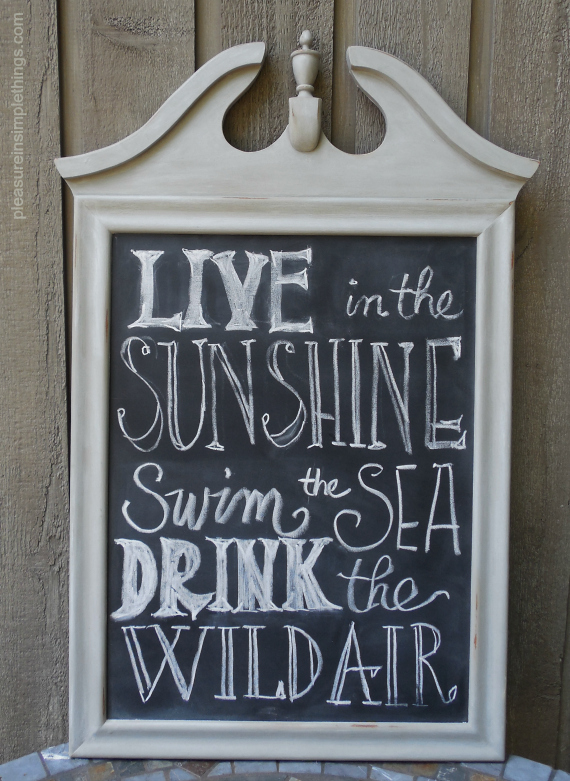 pleasureinsimplethings.com
LIVE in the
SUNSHINE
Swim the SEA
DRINK the
WILD AIR.